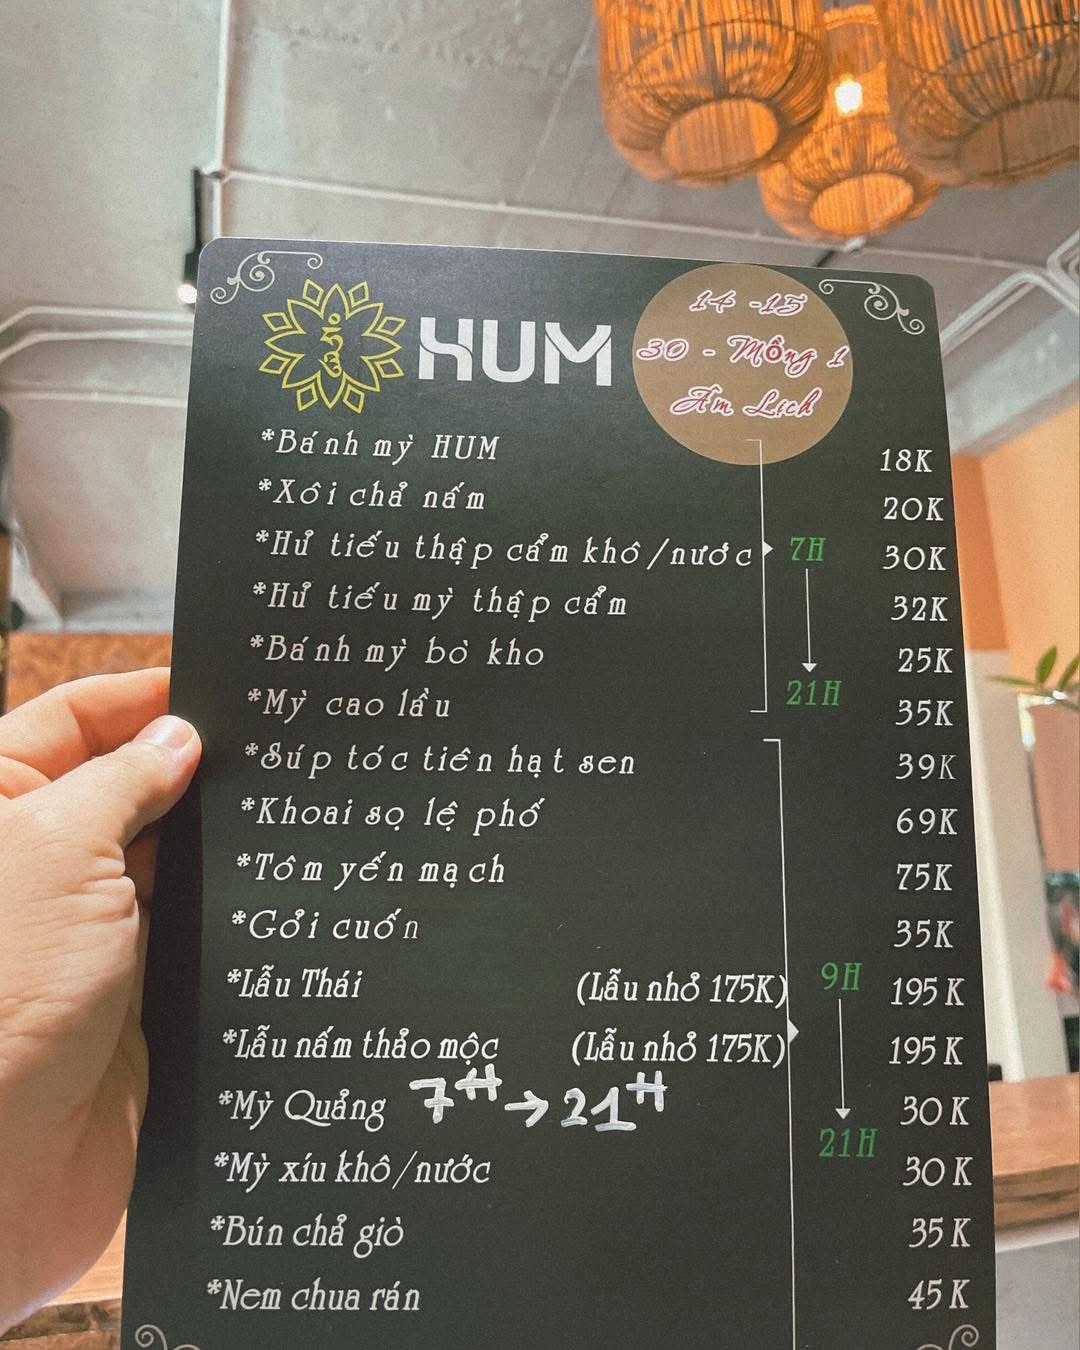 HUM
14 -15
30 - Mồng 1
Âm Lịch
*Bánh mỳ HUM 18K
*Xôi chả nấm 20K
*Hủ tiếu thập cẩm khô/nước 7H 30K
*Hủ tiếu mỳ thập cẩm 32K
*Bánh mỳ bò kho 25K
*Mỳ cao lầu 21H 35K
*Súp tóc tiên hạt sen 39K
*Khoai sọ lệ phố 69K
*Tôm yến mạch 75K
*Gỏi cuốn 35K
*Lẩu Thái (Lẩu nhỏ 175K) 9H 195K
*Lẩu nấm thảo mộc (Lẩu nhỏ 175K) 195K
*Mỳ Quảng 7H → 21H 30K
*Mỳ xíu khô/nước 21H 30K
*Bún chả giò 35K
*Nem chua rán 45K